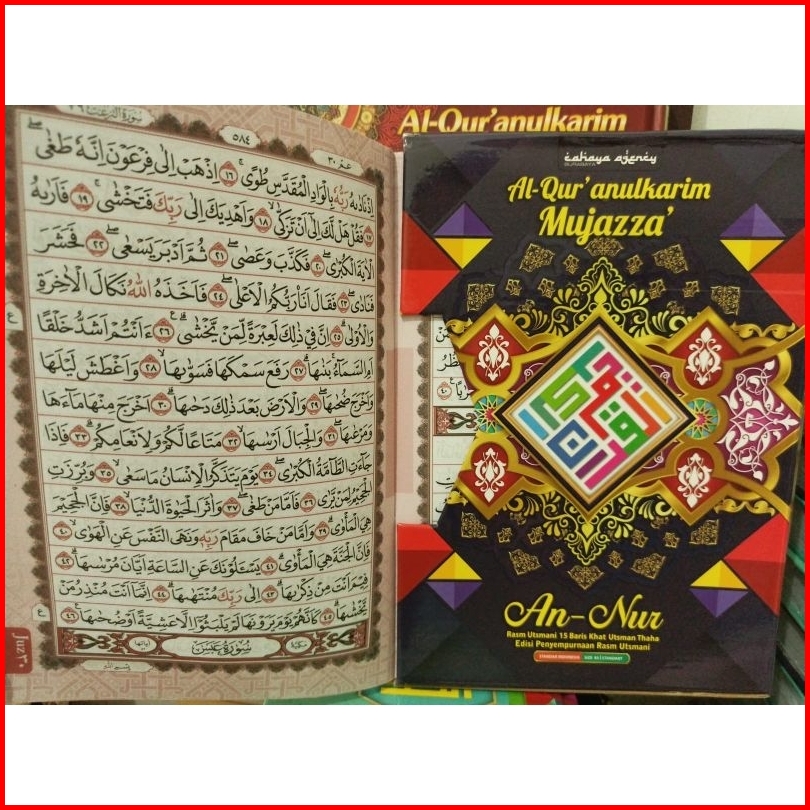 سورة النزعت ٧٩
٥٨٤
عم ٣٠
اِذْ نَادٰىهُ رَبُّهٗ بِالْوَادِ الْمُقَدَّسِ طُوًى ۚ ١٦ اِذْهَبْ اِلٰى فِرْعَوْنَ اِنَّهٗ طَغٰى ۖ
١٧ فَقُلْ هَلْ لَّكَ اِلٰٓى اَنْ تَزَكّٰى ۙ ١٨ وَاَهْدِيَكَ اِلٰى رَبِّكَ فَتَخْشٰى ۚ ١٩ فَاَرٰىهُ
الْاٰيَةَ الْكُبْرٰى ۖ ٢٠ فَكَذَّبَ وَعَصٰى ۖ ٢١ ثُمَّ اَدْبَرَ يَسْعٰى ۖ ٢٢ فَحَشَرَ
فَنَادٰى ۖ ٢٣ فَقَالَ اَنَا۠ رَبُّكُمُ الْاَعْلٰى ۖ ٢٤ فَاَخَذَهُ اللّٰهُ نَكَالَ الْاٰخِرَةِ
وَالْاُوْلٰى ۗ ٢٥ اِنَّ فِيْ ذٰلِكَ لَعِبْرَةً لِّمَنْ يَّخْشٰى ۗ ٢٦ ءَاَنْتُمْ اَشَدُّ خَلْقًا
اَمِ السَّمَاۤءُ ۚ بَنٰىهَا ۗ ٢٧ رَفَعَ سَمْكَهَا فَسَوّٰىهَا ۙ ٢٨ وَاَغْطَشَ لَيْلَهَا
وَاَخْرَجَ ضُحٰىهَا ۖ ٢٩ وَالْاَرْضَ بَعْدَ ذٰلِكَ دَحٰىهَا ۗ ٣٠ اَخْرَجَ مِنْهَا مَاۤءَهَا
وَمَرْعٰىهَا ۖ ٣١ وَالْجِبَالَ اَرْسٰىهَا ۙ ٣٢ مَتَاعًا لَّكُمْ وَلِاَنْعَامِكُمْ ۗ ٣٣ فَاِذَا
جَاۤءَتِ الطَّاۤمَّةُ الْكُبْرٰى ۖ ٣٤ يَوْمَ يَتَذَكَّرُ الْاِنْسَانُ مَا سَعٰى ۙ ٣٥ وَبُرِّزَتِ
الْجَحِيْمُ لِمَنْ يَّرٰى ٣٦ فَاَمَّا مَنْ طَغٰى ۖ ٣٧ وَاٰثَرَ الْحَيٰوةَ الدُّنْيَا ۙ ٣٨ فَاِنَّ الْجَحِيْمَ
هِيَ الْمَأْوٰى ۗ ٣٩ وَاَمَّا مَنْ خَافَ مَقَامَ رَبِّهٖ وَنَهَى النَّفْسَ عَنِ الْهَوٰى ۙ ٤٠
فَاِنَّ الْجَنَّةَ هِيَ الْمَأْوٰى ۗ ٤١ يَسْـَٔلُوْنَكَ عَنِ السَّاعَةِ اَيَّانَ مُرْسٰىهَا ۗ ٤٢
فِيْمَ اَنْتَ مِنْ ذِكْرٰىهَا ۗ ٤٣ اِلٰى رَبِّكَ مُنْتَهٰىهَا ۗ ٤٤ اِنَّمَآ اَنْتَ مُنْذِرُ مَنْ
يَّخْشٰىهَا ۗ ٤٥ كَاَنَّهُمْ يَوْمَ يَرَوْنَهَا لَمْ يَلْبَثُوْٓا اِلَّا عَشِيَّةً اَوْ ضُحٰىهَا ٤٦
مكية سُوْرَةُ عَبَسَ اياتها
Juz ٣٠
Al-Qur'anulkarim
cahaya agency
SURABAYA
Al-Qur'anulkarim
Mujazza'
An-Nur
Rasm Utsmani 15 Baris Khat Utsman Thaha
Edisi Penyempurnaan Rasm Utsmani